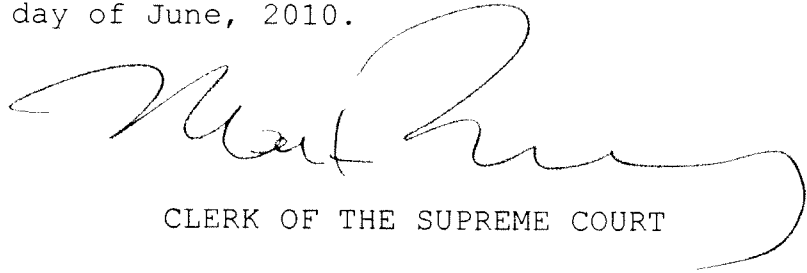 day of June, 2010.
Mark
CLERK OF THE SUPREME COURT